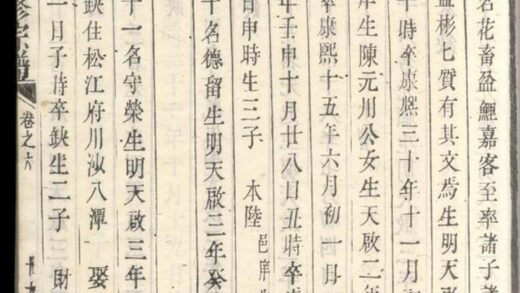 名花畜盈鯉嘉客至率諸子
盈彬匕質有其文焉生明天啟
時卒康熙三十年十一月
庠生陳元川公女生天啟二年
卒康熙十五年六月初一日
年壬申十月廿八日丑時卒
日申時生三子 木陸 邑庠
十名德留生明天啟三年癸
十一名守榮生明天啟三年
缺住松江府川沙八潭 娶
一日子時卒缺生二子 財
修宗譜 卷之六